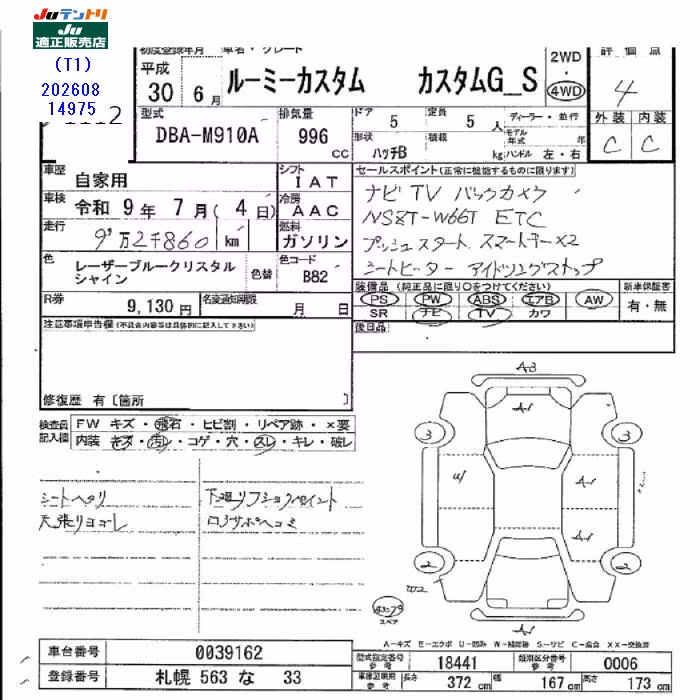 JUテントリ
JU
適正販売店
(T1)
202608
14975
初度登録年月
車名・グレード
平成
30年 6月
ルーミーカスタム カスタムG_S
2WD
・
4WD
評価点
4
外装 内装
C C
型式
DBA-M910A
排気量
996
cc
ドア
5
定員
5
人
ディーラー・並行
モデル年式 年
形状
ハッチB
積載
kg
ハンドル 左・右
車歴
自家用
シフト
I A T
車検
令和 9年 7月(4日)
冷房
A A C
走行
9万2千860 km
燃料
ガソリン
色
レーザーブルークリスタルシャイン
色替
色コード
B82
R券
9,130円
名変通知期限
月 日
セールスポイント(正常に機能するものに限ります)
ナビ TV バックカメラ
NSZT-W66T ETC
プッシュスタート スマートキー×2
シートヒーター アイドリングストップ
装備品(純正品に限り○をつけてください)
PS PW ABS エアB AW
SR ナビ TV カワ
新車保証書
有・無
後日品
注意事項申告欄(不具合内容等は具体的に記入して下さい)
修復歴 有〔箇所 〕
検査員記入欄
FW キズ・飛石・ヒビ割・リペア跡・×要
内装 キズ・汚レ・コゲ・穴・スレ・キレ・破レ
シートヘタリ
天張リヨゴレ
下廻リフショクペイント
ロアサポヘコミ
A3
A1
3 3
U
A1
A1
2 2
W2
A1
スペア
A-キズ E-エクボ U-凹み W-補修跡 S-サビ C-腐食 XX-交換済
車台番号
0039162
登録番号
札幌 563 な 33
型式指定番号
参考
18441
類別区分番号
参考
0006
車庫証明用
参考
長さ 372cm
幅 167cm
高さ 173cm